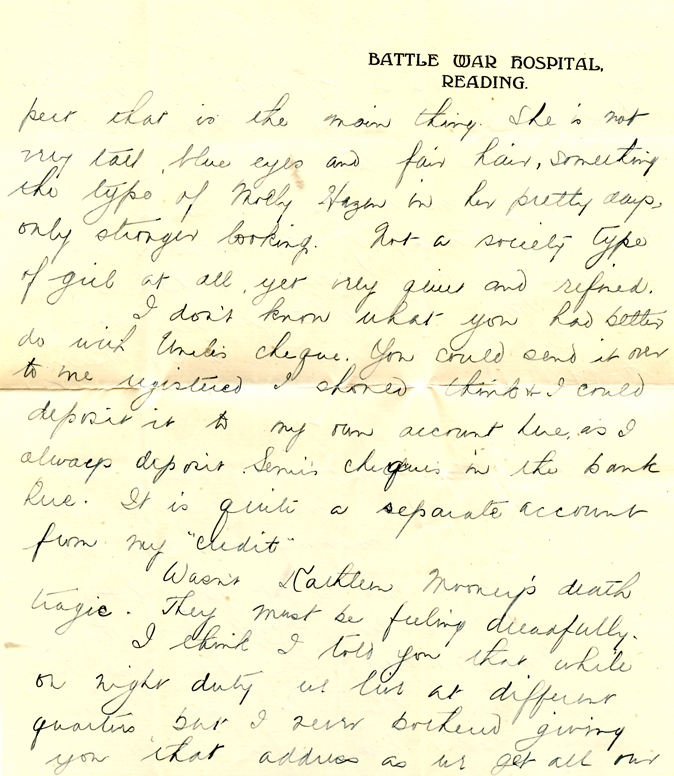 BATTLE WAR HOSPITAL,
READING.
pect that is the main thing. She is not
very tall, blue eyes and fair hair, something
the type of Molly Hazen in her pretty days,
only stronger looking. Not a society type
of girl at all, yet very quiet and refined.
I don't know what you had better
do with Uncle's cheque. You could send it over
to me registered I should think & I could
deposit it to my own account here, as I
always deposit cheques in the bank
here. It is quite a separate account
from my "credit"
Wasn't Kathleen Mooney's death
tragic. They must be feeling dreadfully.
I think I told you that while
on night duty we live at different
quarters but I never bothered giving
you that address as we get all our